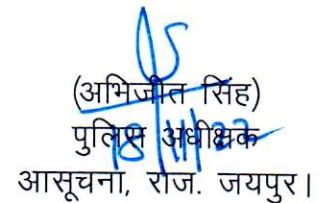 (अभिजीत सिंह)
पुलिस अधीक्षक
18/11/22
आसूचना, राज. जयपुर।